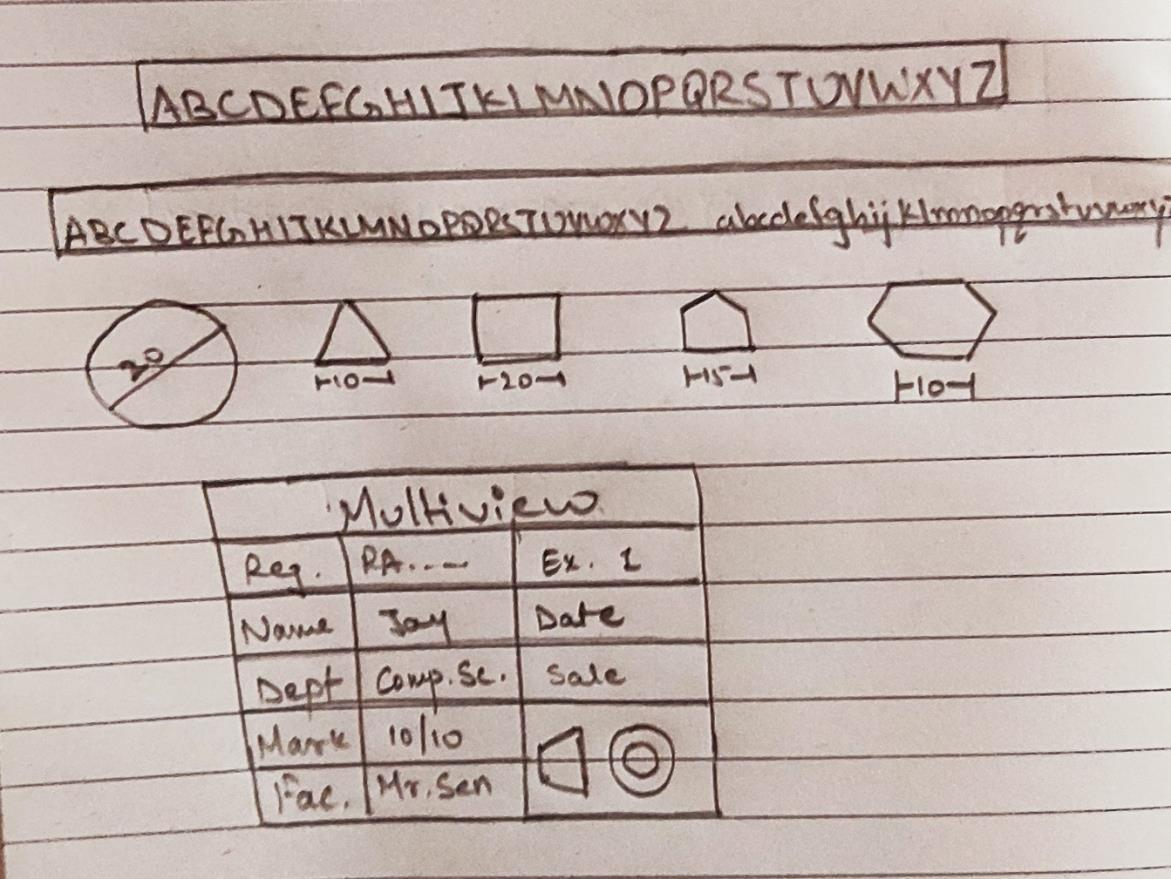 ABCDEFGHIJKLMNOPQRSTUVWXYZ
ABCDEFGHIJKLMNOPQRSTUVWXYZ abcdefghijklmnopqrstuvwxy
20
10 20 15 10
Multiview
Reg. RA..-- Ex. 1
Name Jay Date
Dept Comp.Sc. Sale
Mark 10/10
Fac. Mr. Sen